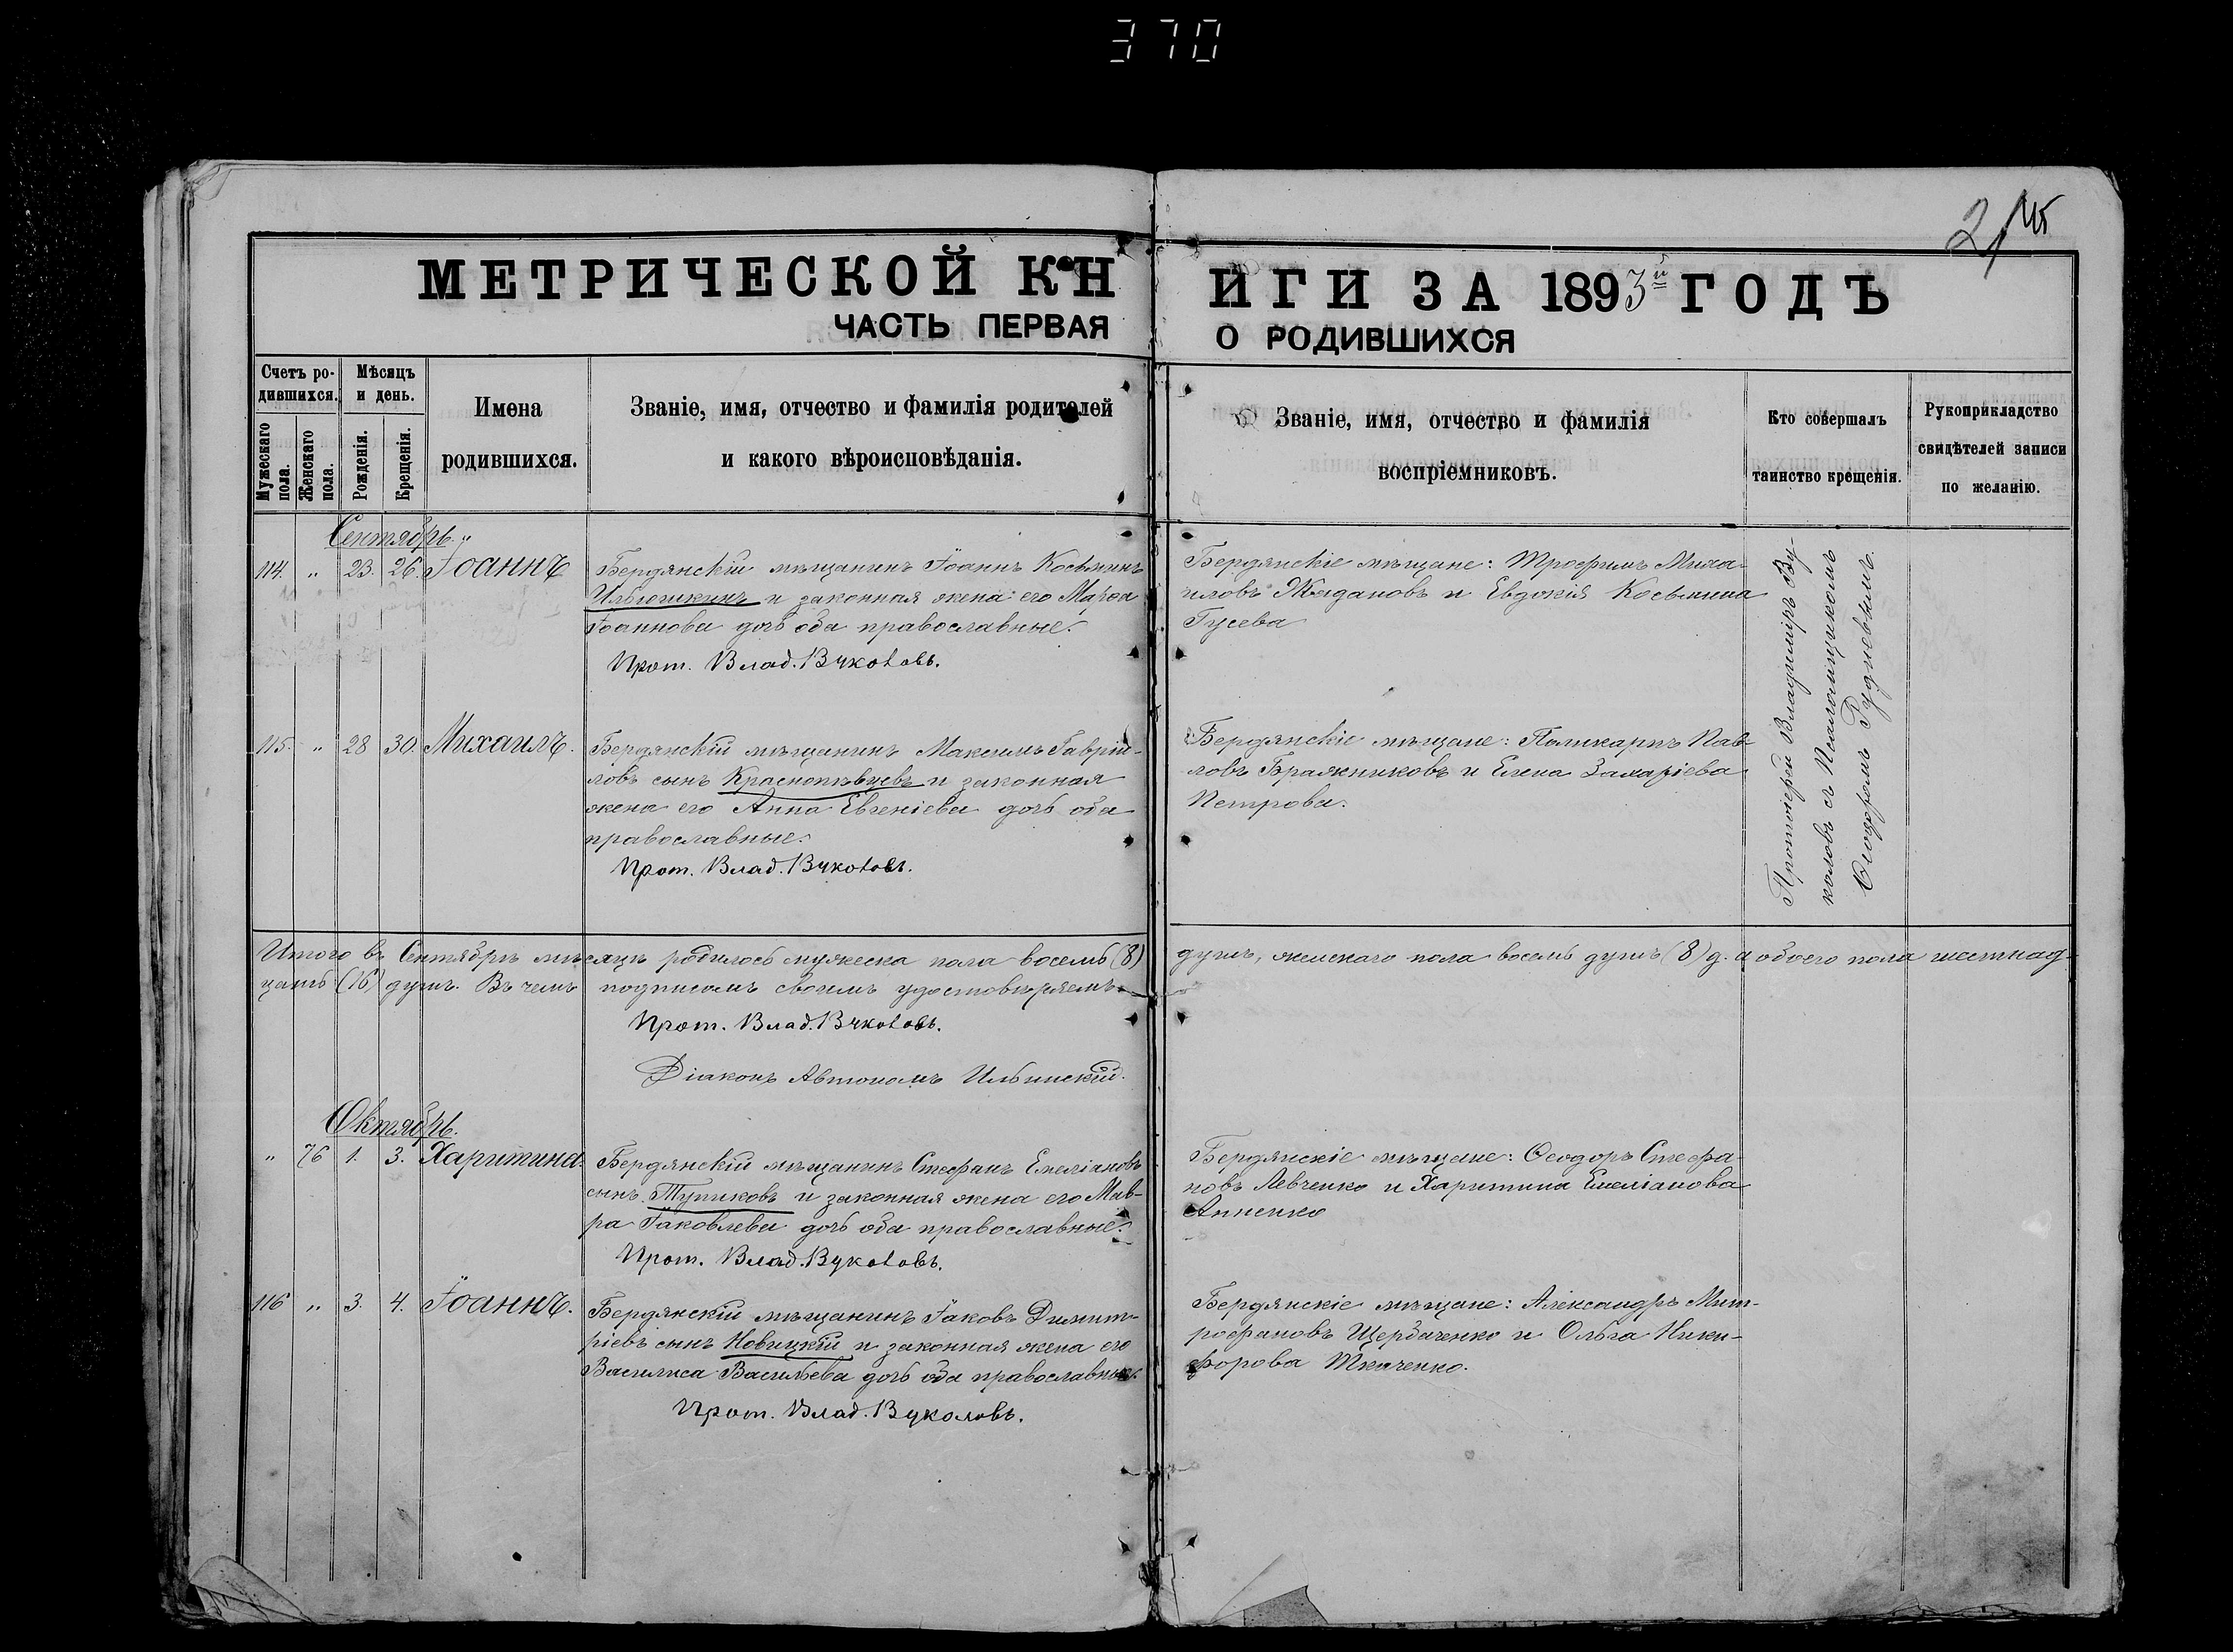 370
МЕТРИЧЕСКОЙ КНИГИ ЗА 1893й ГОДЪ
ЧАСТЬ ПЕРВАЯ О РОДИВШИХСЯ
Счетъ ро-
дившихся.
Мужескаго
пола.
Женскаго
пола.
Мѣсяцъ
и день.
Рожденія.
Крещенія.
Имена
родившихся.
Званіе, имя, отчество и фамилія родителей
и какого вѣроисповѣданія.
Званіе, имя, отчество и фамилія
воспріемниковъ.
Кто совершалъ
таинство крещенія.
Рукоприкладство
свидѣтелей записи
по желанію.
Сентябрь.
114. " 23. 26. Іоаннъ
Бердянскій мѣщанинъ Іоаннъ Косьминъ
Ильюшкинъ и законная жена его Марѳа
Іоаннова дочь оба православные.
Прот. Влад. Вуколовъ.
Бердянскіе мѣщане: Трофимъ Миха-
иловъ Ждановъ и Евдокія Косьмина
Гусева
Протоіерей Владиміръ Ву-
коловъ съ Псаломщикомъ
Ѳеодоромъ Рудневымъ.
115. " 28 30. Михаилъ.
Бердянскій мѣщанинъ Максимъ Гавріи-
ловъ сынъ Краснопѣвцевъ и законная
жена его Анна Евгеніева дочь оба
православные.
Прот. Влад. Вуколовъ.
Бердянскіе мѣщане: Поликарпъ Пав-
ловъ Бражниковъ и Елена Захаріева
Петрова.
Итого въ Сентябрѣ мѣсяцѣ родилось мужеска пола восемь (8) душъ, женскаго пола восемь душъ (8) д. а обоего пола шестнад-
цать (16) душъ. Въ чемъ подписомъ своимъ удостовѣряемъ
Прот. Влад. Вуколовъ.
Діаконъ Автономъ Ильинскій.
Октябрь.
" 76 1. 3. Харитина.
Бердянскій мѣщанинъ Стефанъ Емеліановъ
сынъ Тупиковъ и законная жена его Мав-
ра Іаковлева дочь оба православные.
Прот. Влад. Вуколовъ.
Бердянскіе мѣщане: Ѳеодоръ Стефа-
новъ Левченко и Харитина Емеліанова
Анненко
116 " 3. 4. Іоаннъ.
Бердянскій мѣщанинъ Іаковъ Димит-
ріевъ сынъ Новицкій и законная жена его
Василиса Васильева дочь оба православные.
Прот. Влад. Вуколовъ.
Бердянскіе мѣщане: Александръ Мит-
рофановъ Щербаченко и Ольга Ники-
форова Ткаченко.